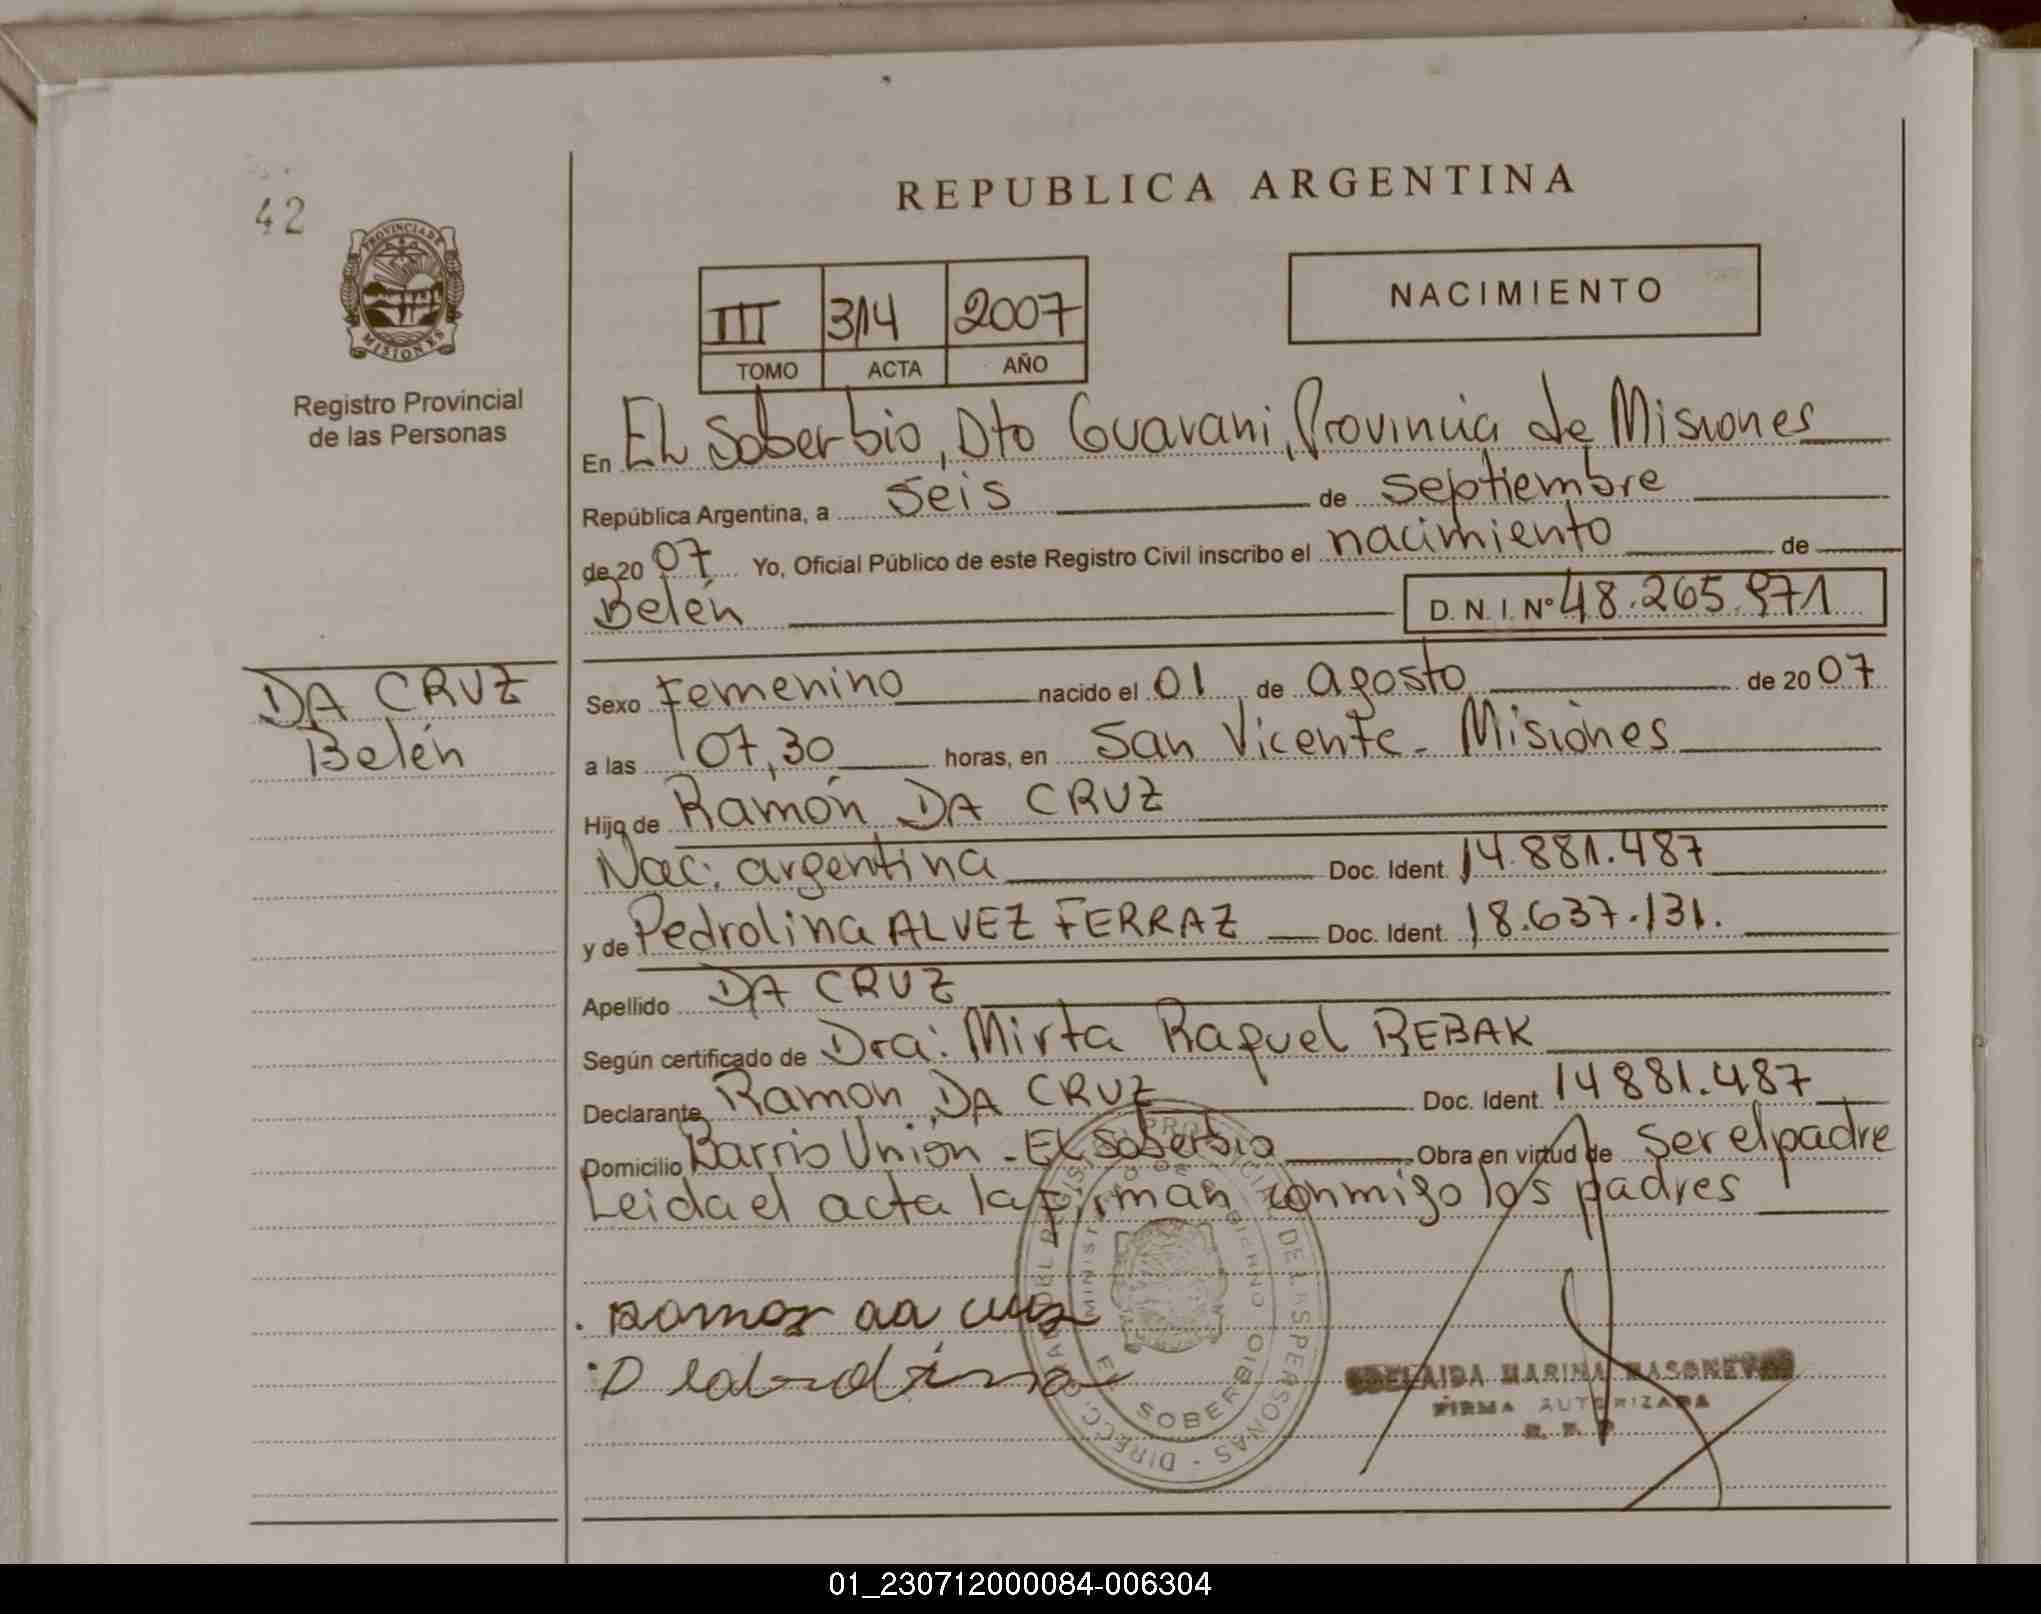 42
PROVINCIA DE
MISIONES
Registro Provincial
de las Personas
REPUBLICA ARGENTINA
III 314 2007
TOMO ACTA AÑO
NACIMIENTO
En EL Soberbio, Dto Guarani, Provincia de Misiones
República Argentina, a seis de septiembre
de 20 07 Yo, Oficial Público de este Registro Civil inscribo el nacimiento de
Belén D. N. I. Nº 48.265.971
DA CRUZ
Belén
Sexo Femenino nacido el 01 de agosto de 20 07
a las 07,30 horas, en San Vicente - Misiones
Hijo de Ramón DA CRUZ
Nac: argentina Doc. Ident. 14.881.487
y de Pedrolina ALVEZ FERRAZ Doc. Ident. 18.637.131.
Apellido DA CRUZ
Según certificado de Dra: Mirta Raquel REBAK
Declarante Ramon DA CRUZ Doc. Ident. 14881.487
Domicilio Barrio Unión - EL Soberbio Obra en virtud de ser el padre
Leida el acta la firman conmigo los padres
ramon da cruz
DIRECC. GRAL. DEL REGIST. PROVINCIAL DE LAS PERSONAS
MINISTERIO DE GOBIERNO
EL SOBERBIO
ADELAIDA MARINA
FIRMA AUTORIZADA
R. P. P.
01_230712000084-006304